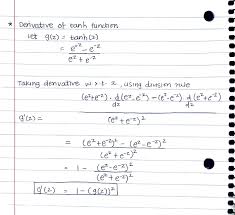 * Derivative of tanh function
let g(z) = tanh(z)
= e^z - e^-z
e^z + e^-z
Taking derivative w.r.t. z, using division rule
(e^z+e^-z) · d/dz (e^z-e^-z) - (e^z-e^-z) d/dz (e^z+e^-z)
g'(z) =
(e^z + e^-z)²
= (e^z+e^-z)² - (e^z-e^-z)²
(e^z + e^-z)²
= 1 - (e^z-e^-z)²
(e^z+e^-z)²
g'(z) = 1-(g(z))²